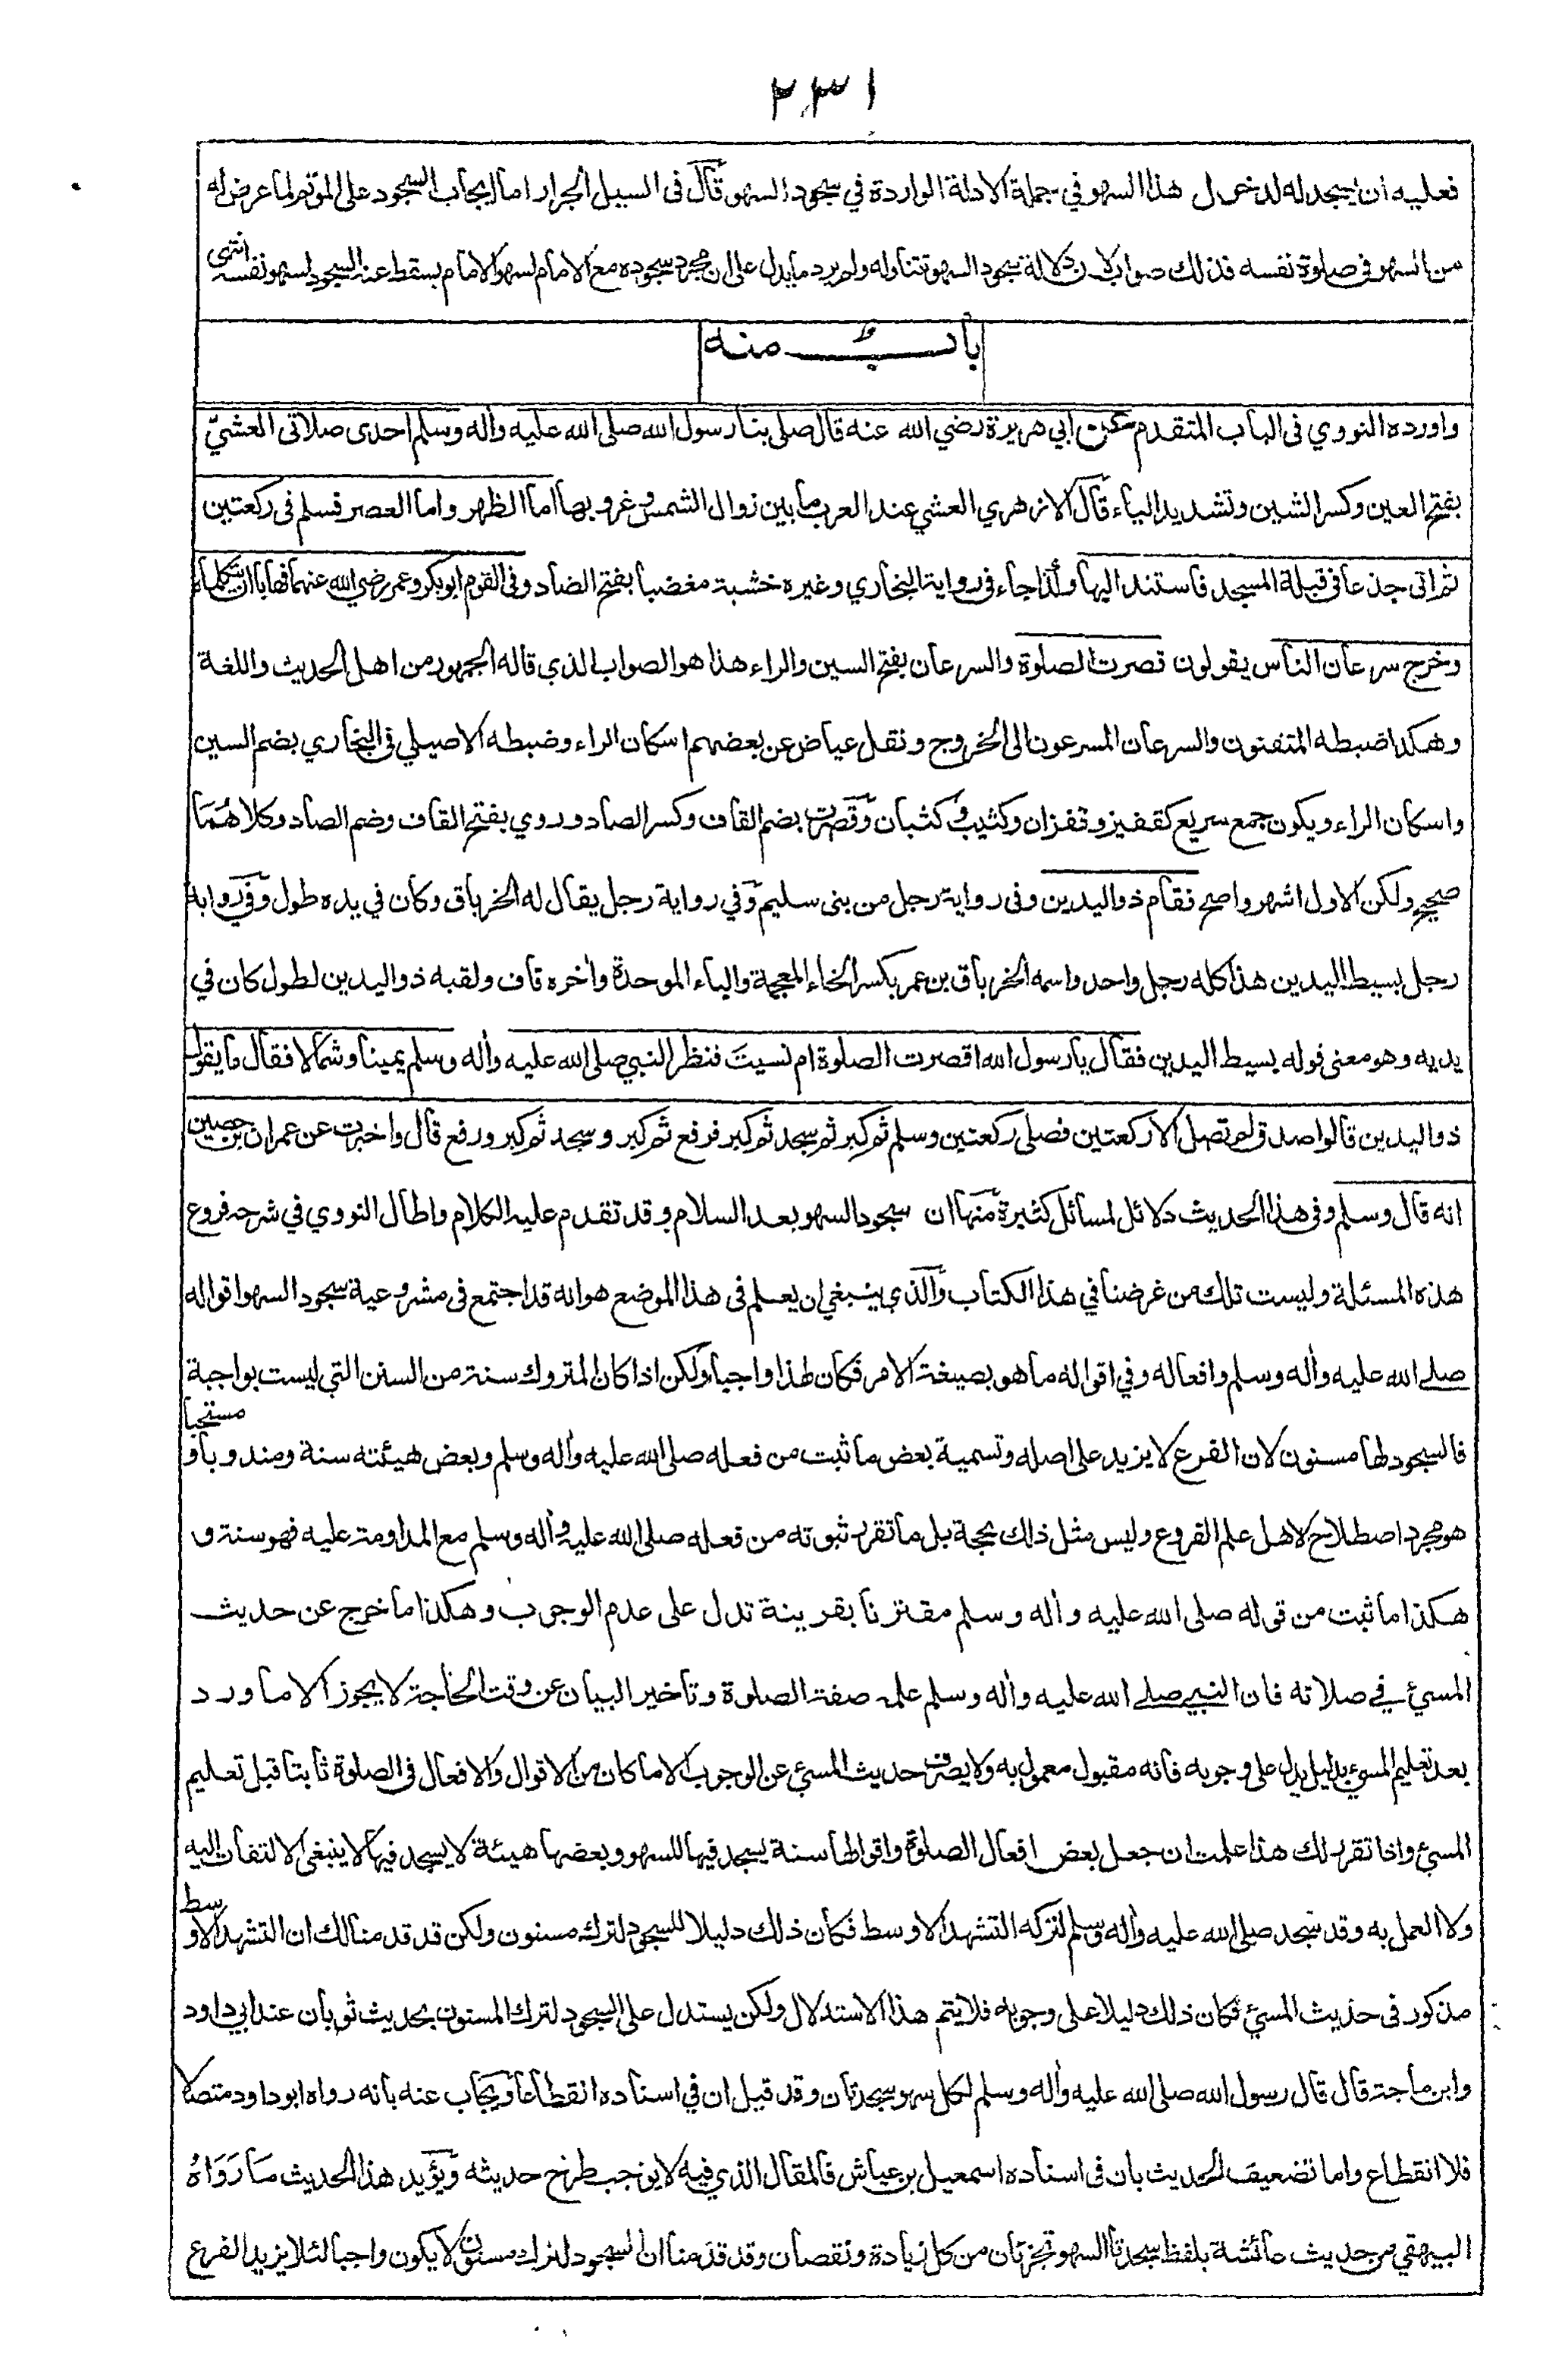 ٢٣١
فعليه ان يسجد له لدخول هذا السهو في جملة الادلة الواردة في سجود السهو قال فى السيل الجرار اما ايجاب السجود على المؤتم لما عرض له
من السهو فى صلوة نفسه فذلك صواب لان دلالة سجود السهو تتناوله ولم يرد ما يدل على ان مجرد سجوده مع الامام لسهو الامام يسقط عنه السجود لسهو نفسه انتهى
باب منه
واورده النووي فى الباب المتقدم عن ابي هريرة رضي الله عنه قال صلى بنا رسول الله صلى الله عليه وأله وسلم احدى صلاتى العشيّ
بفتح العين وكسر الشين وتشديد الياء قال الازهري العشي عند العرب ما بين زوال الشمس وغروبها اما الظهر واما العصر فسلم فى ركعتين
ثم اتى جذعا فى قبلة المسجد فاستند اليها وكذا جاء فى رواية البخاري وغيره خشبة مغضبا بفتح الضاد وفى القوم ابو بكر وعمر رضي الله عنهما فهابا ان يتكلماه
وخرج سرعان الناس يقولون قصرت الصلوة والسرعان بفتح السين والراء هذا هو الصواب الذي قاله الجمهور من اهل الحديث واللغة
وهكذا ضبطه المتقنون والسرعان المسرعون الى الخروج ونقل عياض عن بعضهم اسكان الراء وضبطه الاصيلي فى البخاري بضم السين
واسكان الراء ويكون جمع سريع كقفيز وقفزان وكثيب وكثبان وقصرت بضم القاف وكسر الصاد وروي بفتح القاف وضم الصاد وكلاهُمَا
صحيح ولكن الاول اشهر واصح فقام ذو اليدين وفى رواية رجل من بنى سليم وفي رواية رجل يقال له الخرباق وكان في يده طول وفي رواية
رجل بسيط اليدين هذا كله رجل واحد واسمه الخرباق بن عمر بكسر الخاء المعجمة والباء الموحدة واخره قاف ولقبه ذو اليدين لطول كان في
يديه وهو معنى قوله بسيط اليدين فقال يا رسول الله اقصرت الصلوة ام نسيتَ فنظر النبي صلى الله عليه وأله وسلم يمينا وشمالا فقال ما يقول
ذو اليدين قالوا صدق لم تصل الا ركعتين فصلى ركعتين وسلم ثم كبر ثم سجد ثم كبر فرفع ثم كبر وسجد ثم كبر ورفع قال واخبرت عن عمران بن حصين
انه قال وسلم وفى هذا الحديث دلائل لمسائل كثيرة منها ان سجود السهو بعد السلام وقد تقدم عليه الكلام واطال النووي في شرحه فروع
هذه المسئلة وليست تلك من غرضنا في هذا الكتاب والذي ينبغي ان يعلم فى هذا الموضع هو انه قد اجتمع فى مشروعية سجود السهو اقواله
صلى الله عليه وأله وسلم وافعاله وفي اقواله ما هو بصيغة الامر فكان لهذا واجبا ولكن اذا كان المتروك سنة من السنن التي ليست بواجبة
فالسجود لها مسنون لان الفرع لا يزيد على اصله وتسمية بعض ما ثبت من فعله صلى الله عليه وأله وسلم وبعض هيئته سنة ومندوبا و مستحبا
هو مجرد اصطلاح لاهل علم الفروع وليس مثل ذلك بحجة بل ما تقرر ثبوته من فعله صلى الله عليه وأله وسلم مع المداومة عليه فهو سنة و
هكذا ما ثبت من قوله صلى الله عليه وأله وسلم مقترنا بقرينة تدل على عدم الوجوب وهكذا ما خرج عن حديث
المسيئ في صلاته فان النبي صلى الله عليه وأله وسلم علمه صفة الصلوة وتأخير البيان عن وقت الحاجة لا يجوز الا ما ورد
بعد تعليم المسيئ بدليل يدل على وجوبه فانه مقبول معمول به ولا يصرف حديث المسيئ عن الوجوب الا ما كان من الاقوال والافعال فى الصلوة ثابتا قبل تعليم
المسيئ واذا تقرر لك هذا علمت ان جعل بعض افعال الصلوة واقوالها سنة يسجد فيها للسهو وبعضها هيئة لا يسجد فيها لا ينبغى الالتفات اليه
ولا العمل به وقد سجد صلى الله عليه وأله وسلم لتركه التشهد الاوسط فكان ذلك دليلا للسجود لترك مسنون ولكن قد قدمنا لك ان التشهد الاوسط
مذكور فى حديث المسيئ فكان ذلك دليلا على وجوبه فلا يتم هذا الاستدلال ولكن يستدل على السجود لترك المسنون بحديث ثوبان عند ابي داود
وابن ماجة قال قال رسول الله صلى الله عليه وأله وسلم لكل سهو سجدتان وقد قيل ان في اسناده انقطاعا ويجاب عنه بانه رواه ابو داود متصلا
فلا انقطاع واما تضعيف الحديث بان فى اسناده اسمعيل بن عياش فالمقال الذي فيه لا يوجب طرح حديثه ويؤيد هذا الحديث مَا رَوَاهُ
البيهقي من حديث عائشة بلفظ سجدتا السهو تجزيان من كل زيادة ونقصان وقد قدمنا ان السجود لترك مسنون لا يكون واجبا لئلا يزيد الفرع